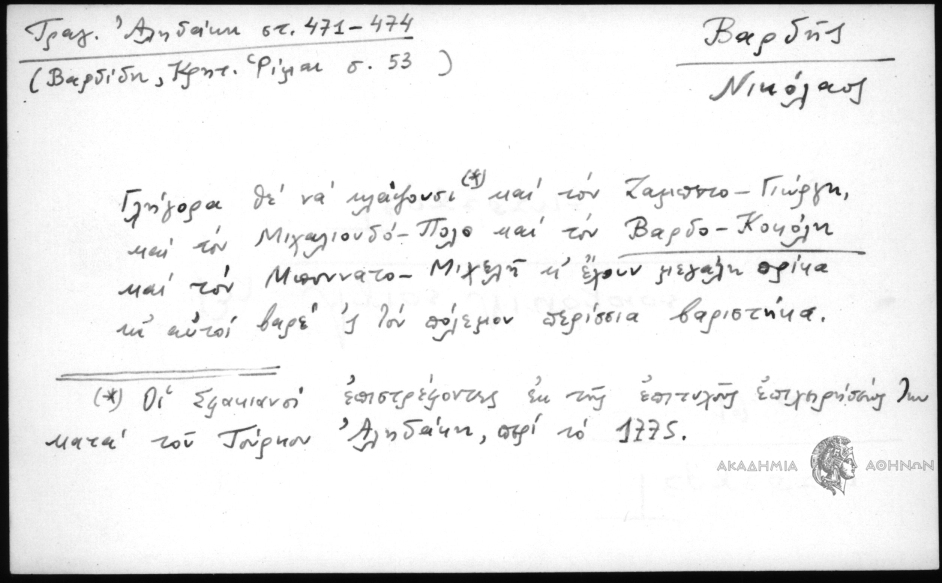 Τραγ. Ἀληδάκη στ. 471-474
(Βαρδίδη, Κρητ. Ρίμαι σ. 53 )
Βαρδῆς
Νικόλαος
Γλήγορα θέ νά κλάψουσι (*) καί τόν Ζαμπετο-Γιώργη,
καί τόν Μιχαλιουδό-Πολο καί τόν Βαρδο-Κοκόλη
καί τόν Μπονάτο-Μιχελῆ κ' ἔχουν μεγάλη πρίκα
κι' αὐτοί βαρέ' 'ς τόν πόλεμον περίσσια βαριστήκα.
(*) Οἱ Σφακιανοί ἐπιστρέψοντες ἐκ τῆς ἐπιτυχῆς ἐπιχειρήσεώς των
κατά τοῦ Τούρκου Ἀληδάκη, περί τό 1775.
ΑΚΑΔΗΜΙΑ ΑΘΗΝΩΝ